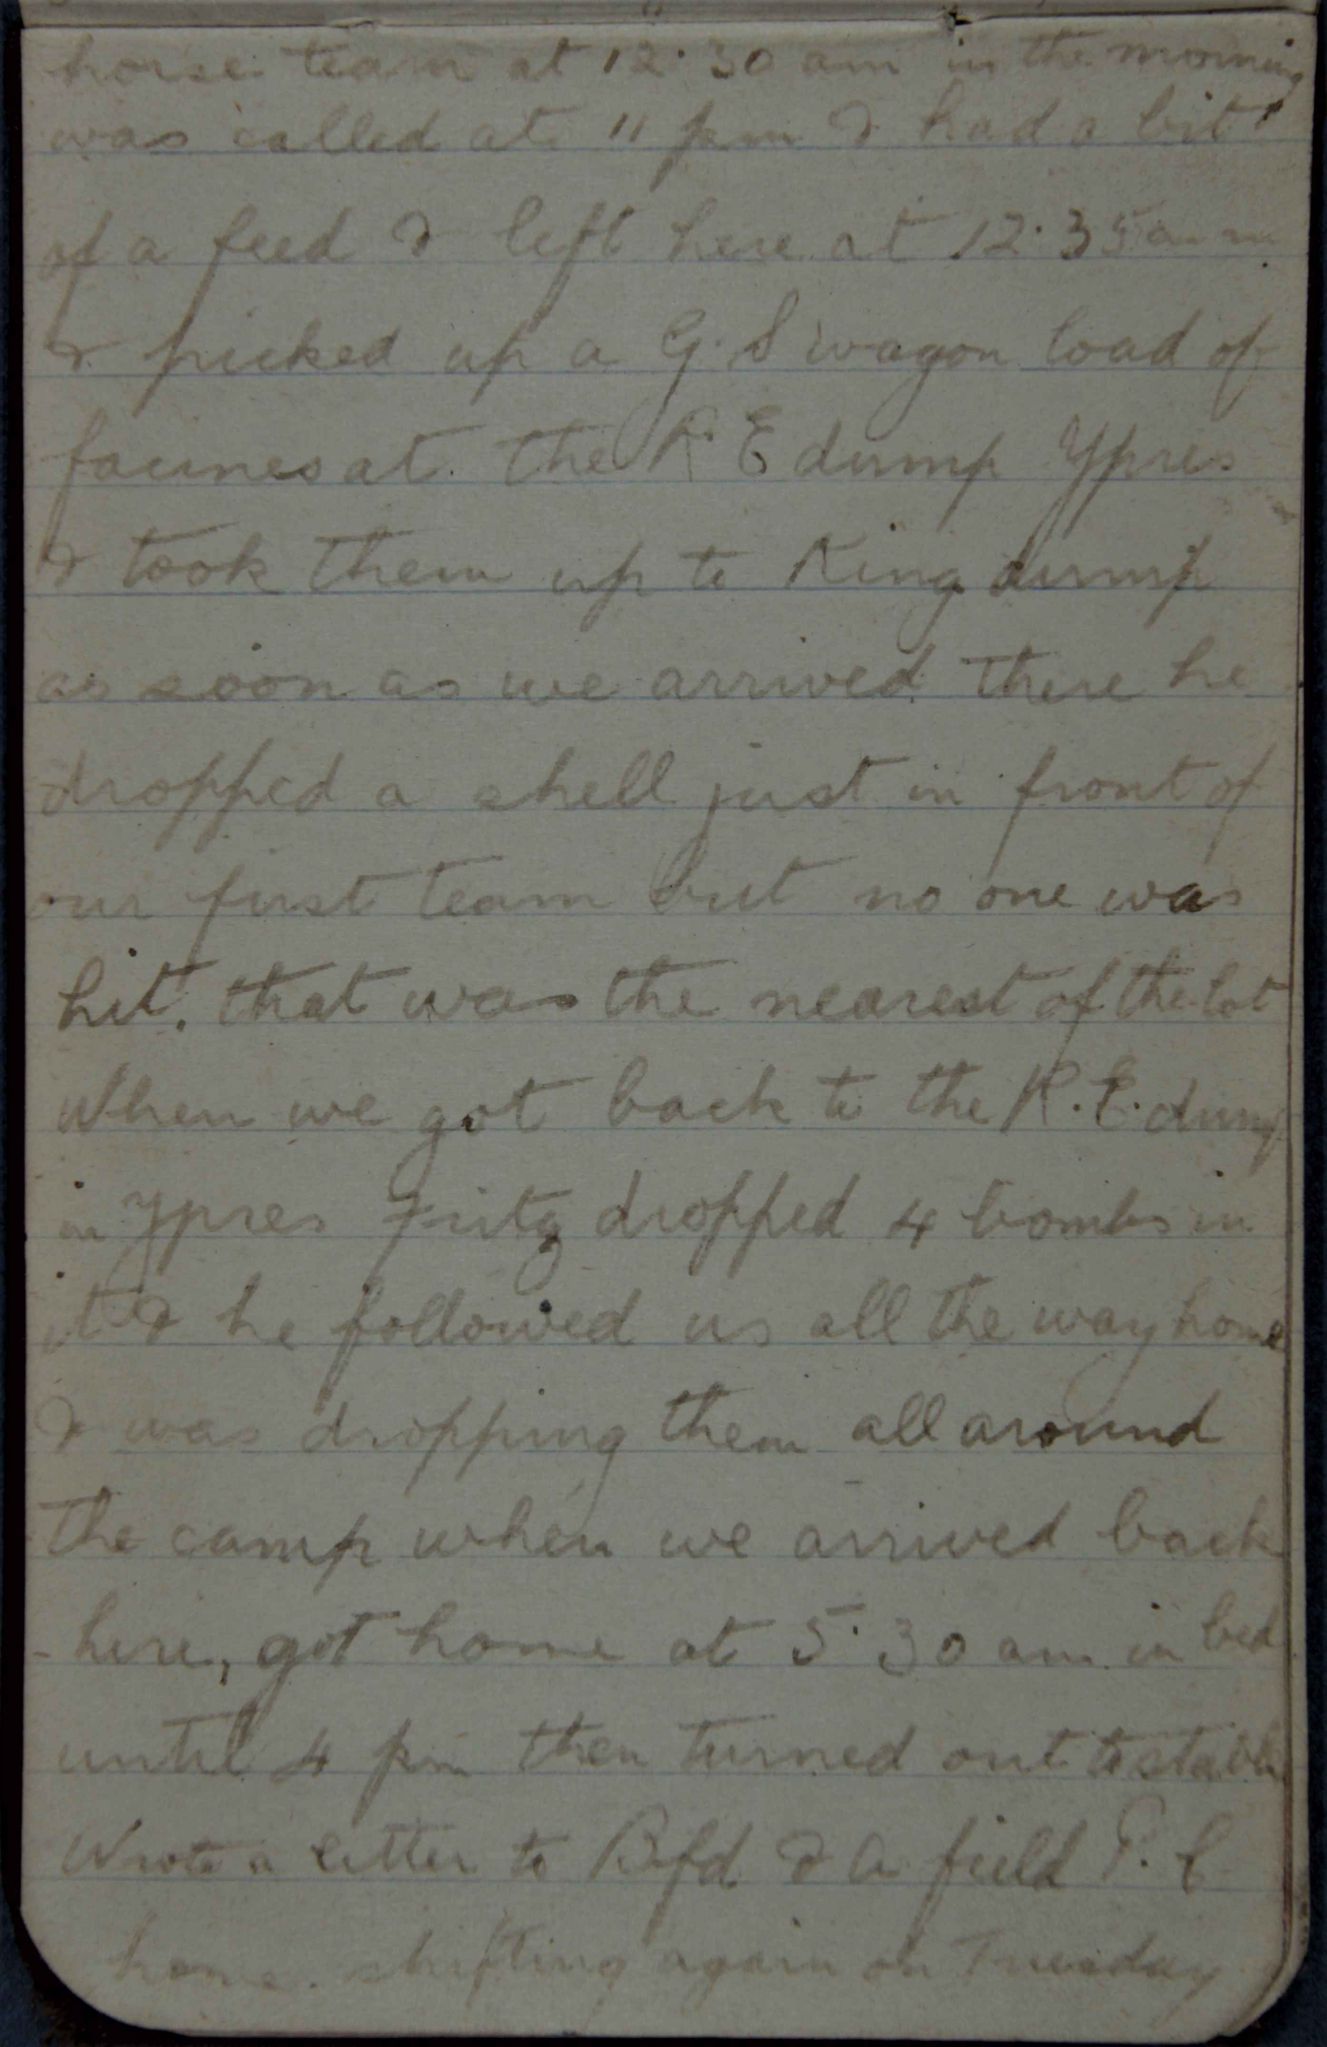 horse team at 12.30 am in the morning
was called at 11 pm & had a bit
of a feed & left here at 12.35 am
& picked up a G.S wagon load of
facines at the R.E dump Ypres
& took them up to King dump
as soon as we arrived there he
dropped a shell just in front of
our first team but no one was
hit. that was the nearest of the lot
When we got back to the R.E. dump
in Ypres Fritz dropped 4 bombs in
it & he followed us all the way home
& was dropping them all around
the camp when we arrived back
here, got home at 5.30 am in bed
until 4 pm then turned out to stable
Wrote a letter to Bfd & a field P.C
home. shifting again on Tuesday